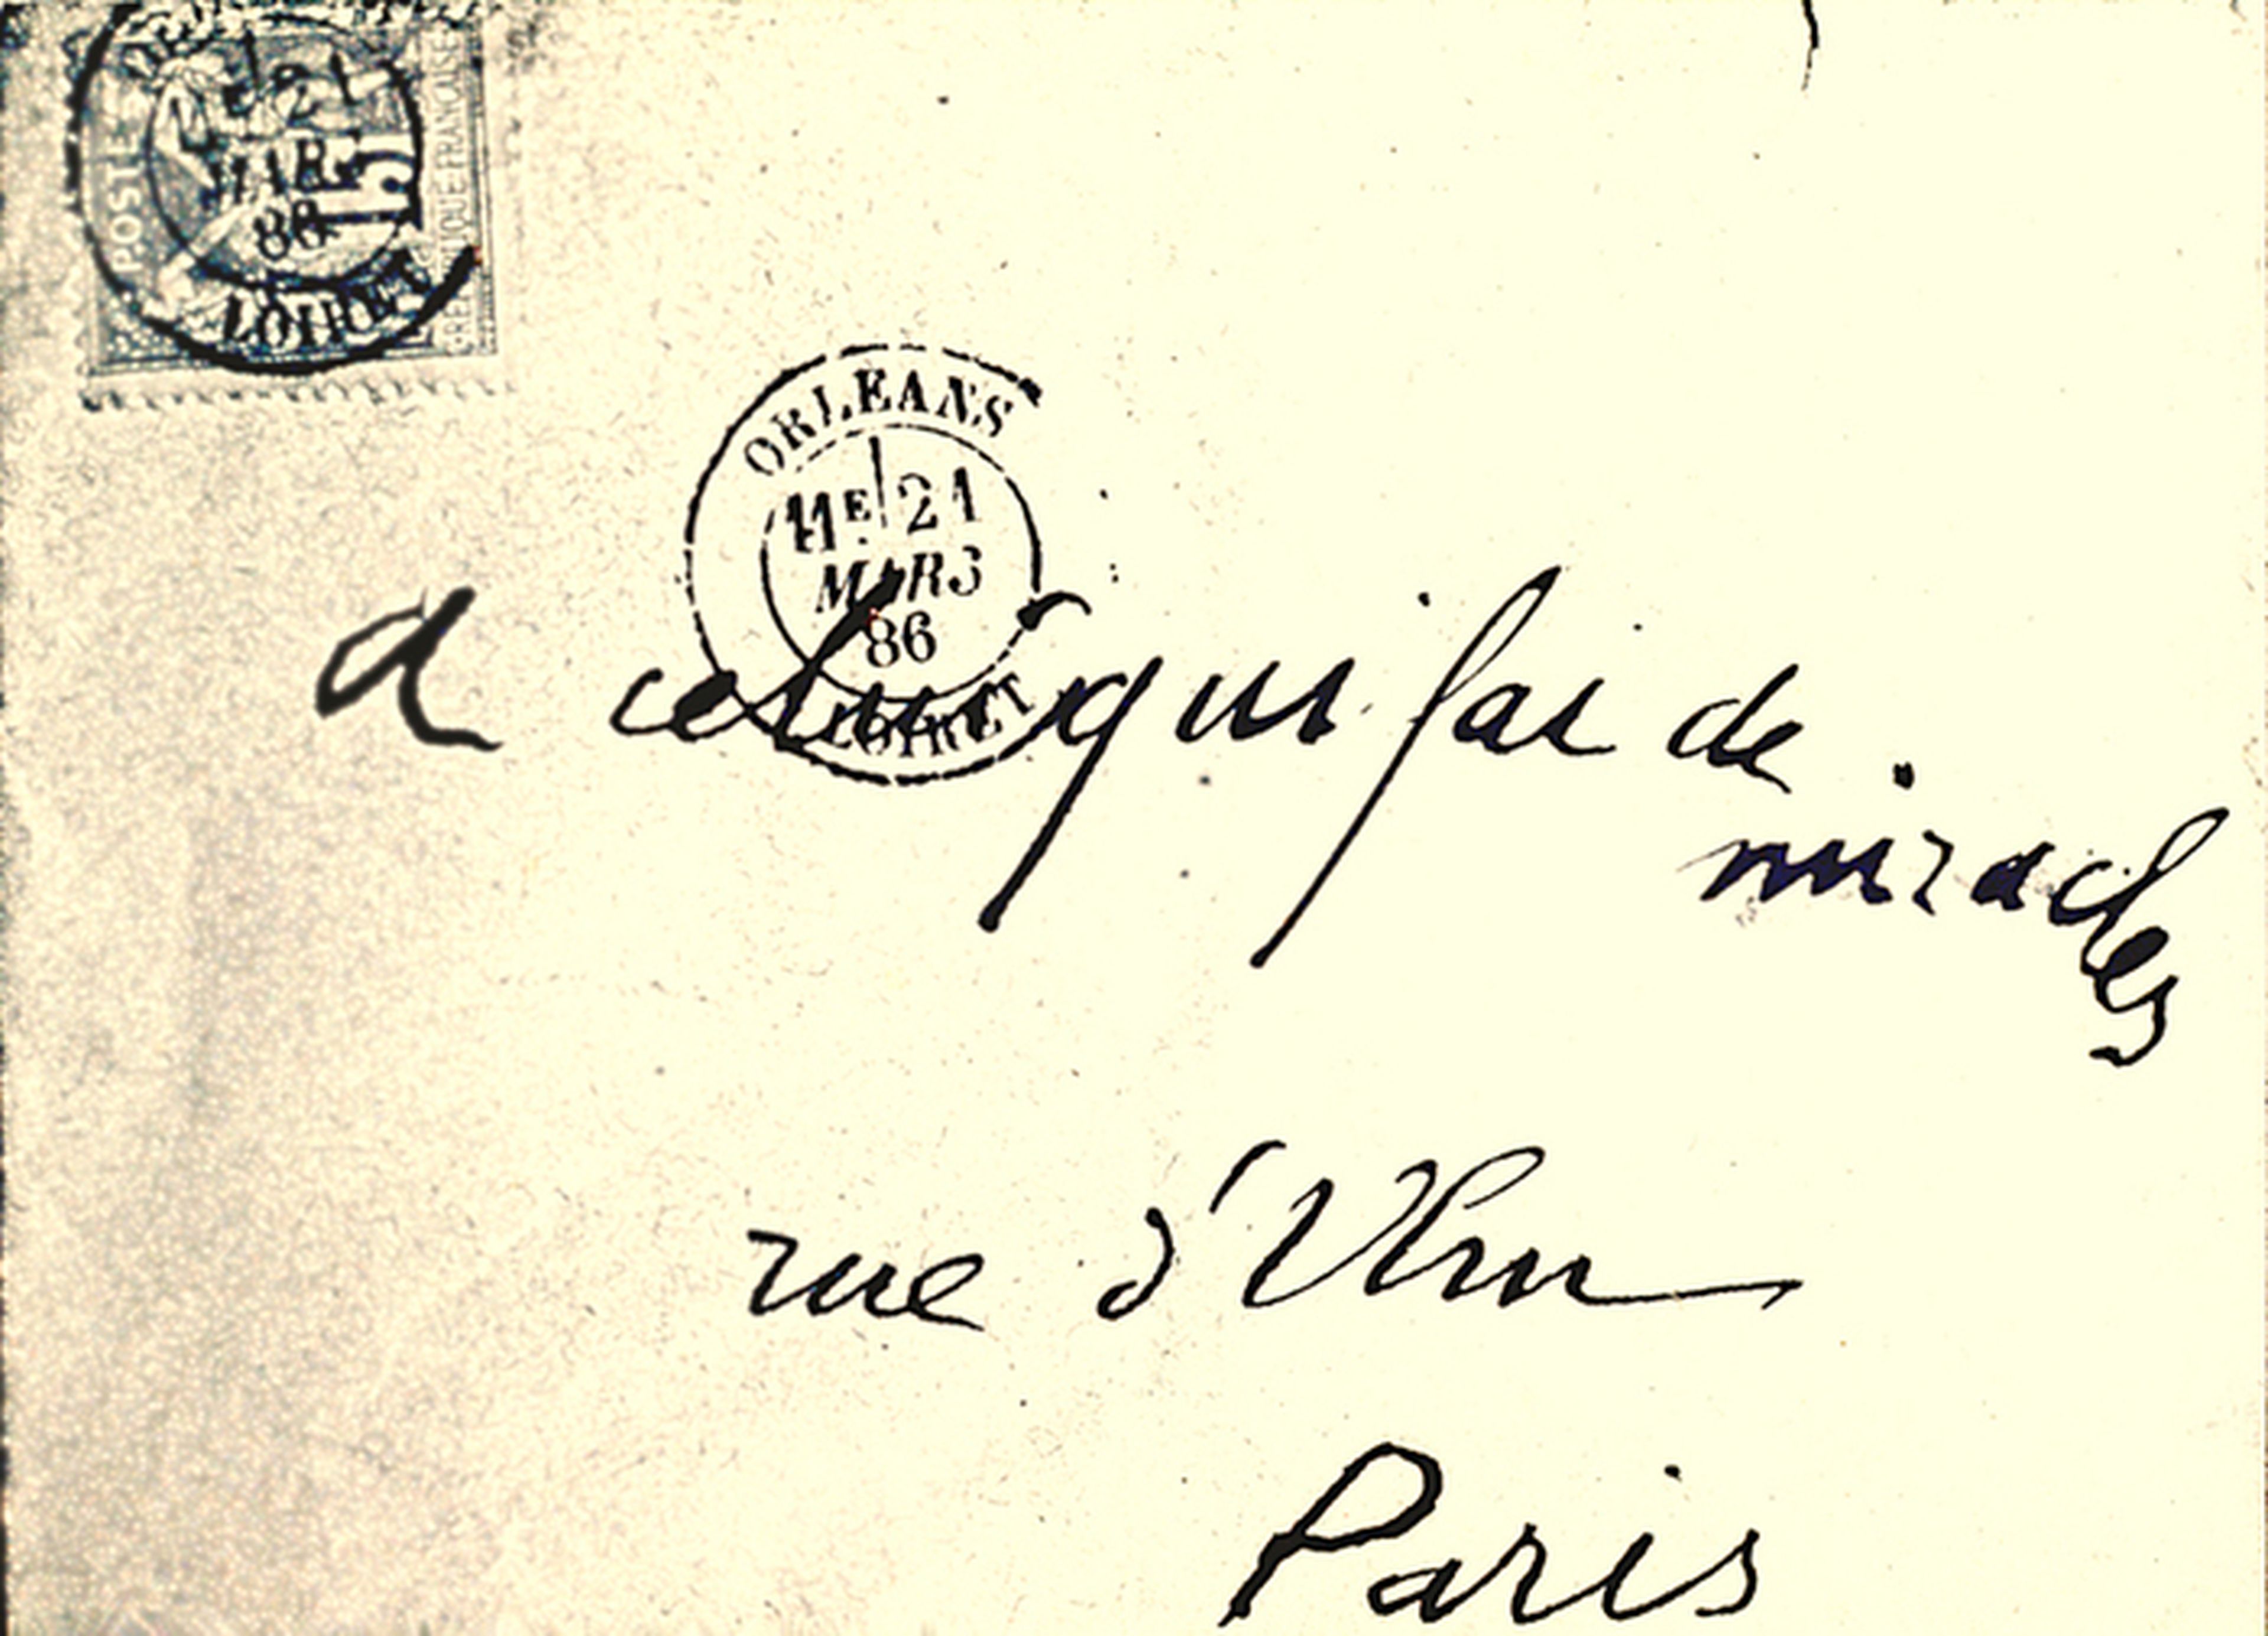 POSTE
RÉPUBLIQUE FRANÇAISE
21
MAR
86
15
LOIRET
ORLEANS
11E 21
MARS
86
LOIRET
a celui qui fai de
miracles
rue d'Ulm
Paris